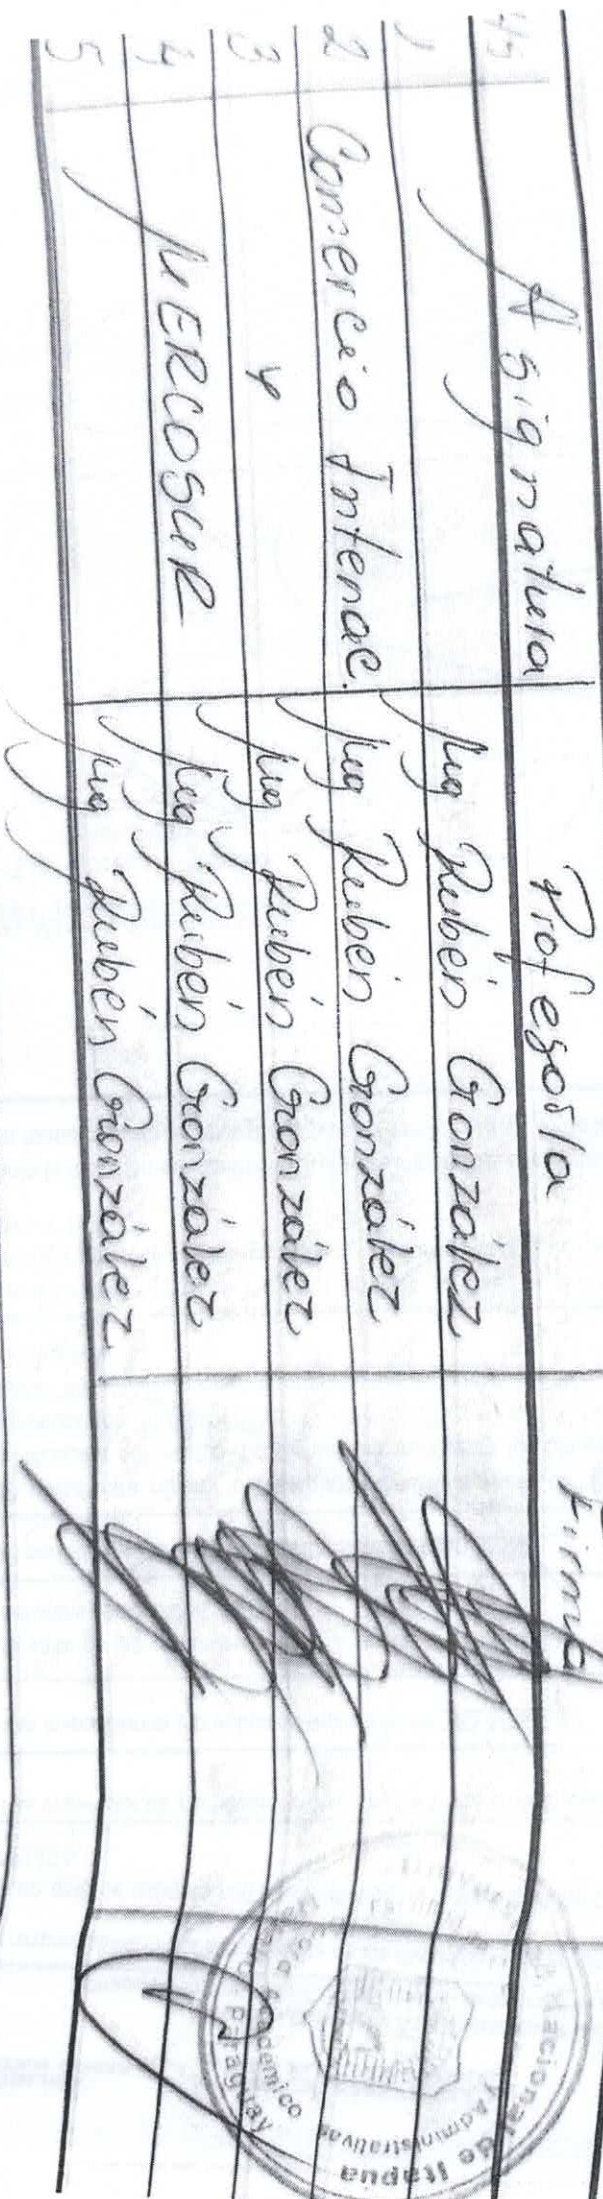 Hs Asignatura Profesor/a Firma
1 Mg Rubén González
2 Comercio Intenac. Mg Rubén González
3 y Mg Rubén González
4 MERCOSUR Mg Rubén González
5 Mg Rubén González
Nacional de Itapúa
y Administrativas
Académico
Paraguay